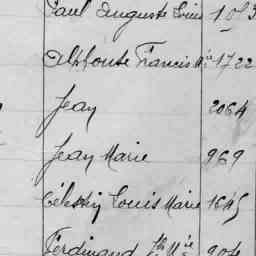 Paul Auguste Louis
Alphonse Francis Mie 1722
Jean 2064
Jean Marie 969
Célestin Louis Marie 1645
Ferdinand Jh Mie 904